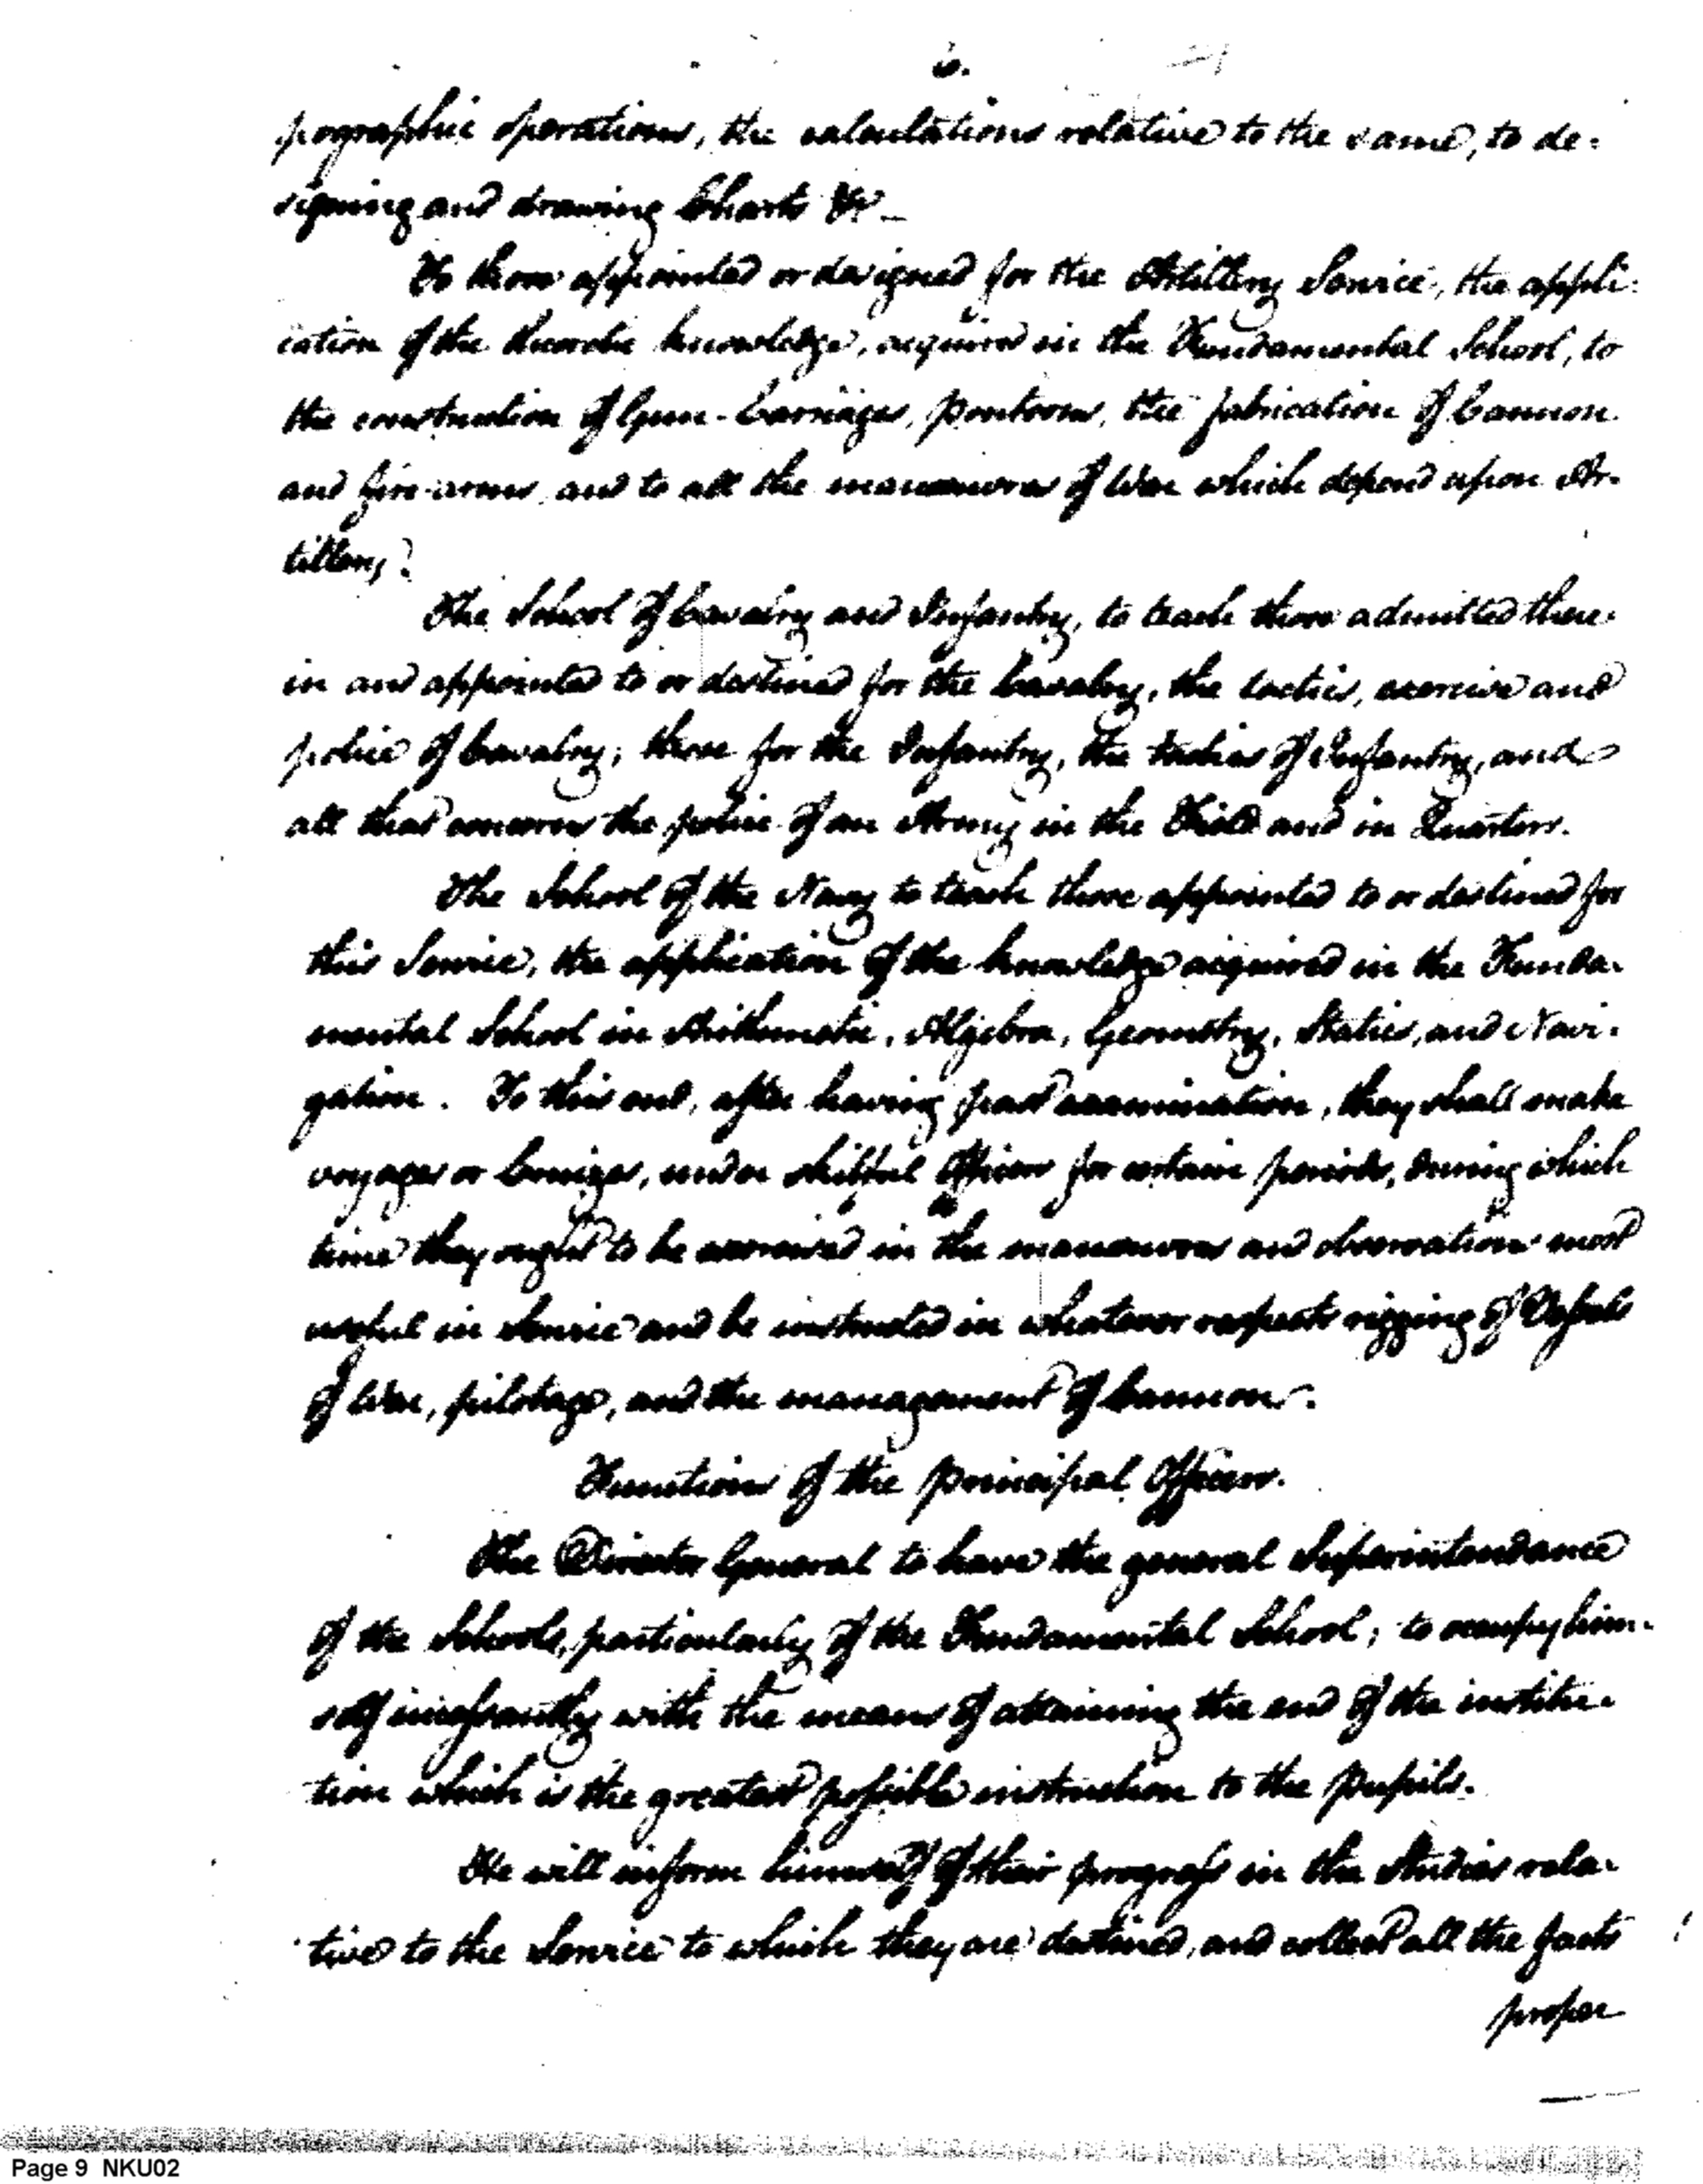 6.
pographic operations, the calculations relative to the same, to de-
signing and drawing Charts &c—
To those appointed or designed for the Artillery Service, the appli-
cation of the theoretic knowledge, acquired in the Fundamental School, to
the construction of Gun-Carriages, pontoons, the fabrication of Cannon
and fire-arms and to all the manoeuvres of War which depend upon Ar-
tillery.
The School of Cavalry and Infantry, to teach those admitted there-
in and appointed to or destined for the Cavalry, the tactics, exercise and
police of Cavalry; those for the Infantry, the tactics of Infantry, and
all that concerns the police of an Army in the Field and in Quarters.
The School of the Navy to teach those appointed to or destined for
this Service, the application of the knowledge acquired in the Funda-
mental School in Arithmetic, Algebra, Geometry, Statics, and Navi-
gation. To this end, after having past examination, they shall make
voyages or Cruizes, under skilful Officers for certain periods, during which
time they ought to be exercised in the manoeuvres and observations most
useful in Service and be instructed in whatever respects rigging of Vessels
of War, pilotage, and the management of Cannon.
Functions of the principal Officers.
The Director General to have the general Superintendance
of the Schools, particularly of the Fundamental School; to occupy him-
self incessantly with the means of attaining the end of the institu-
tion which is the greatest possible instruction to the pupils.
He will inform himself of their progress in the Studies rela-
tive to the Service to which they are destined, and collect all the facts
proper
Page 9 NKU02